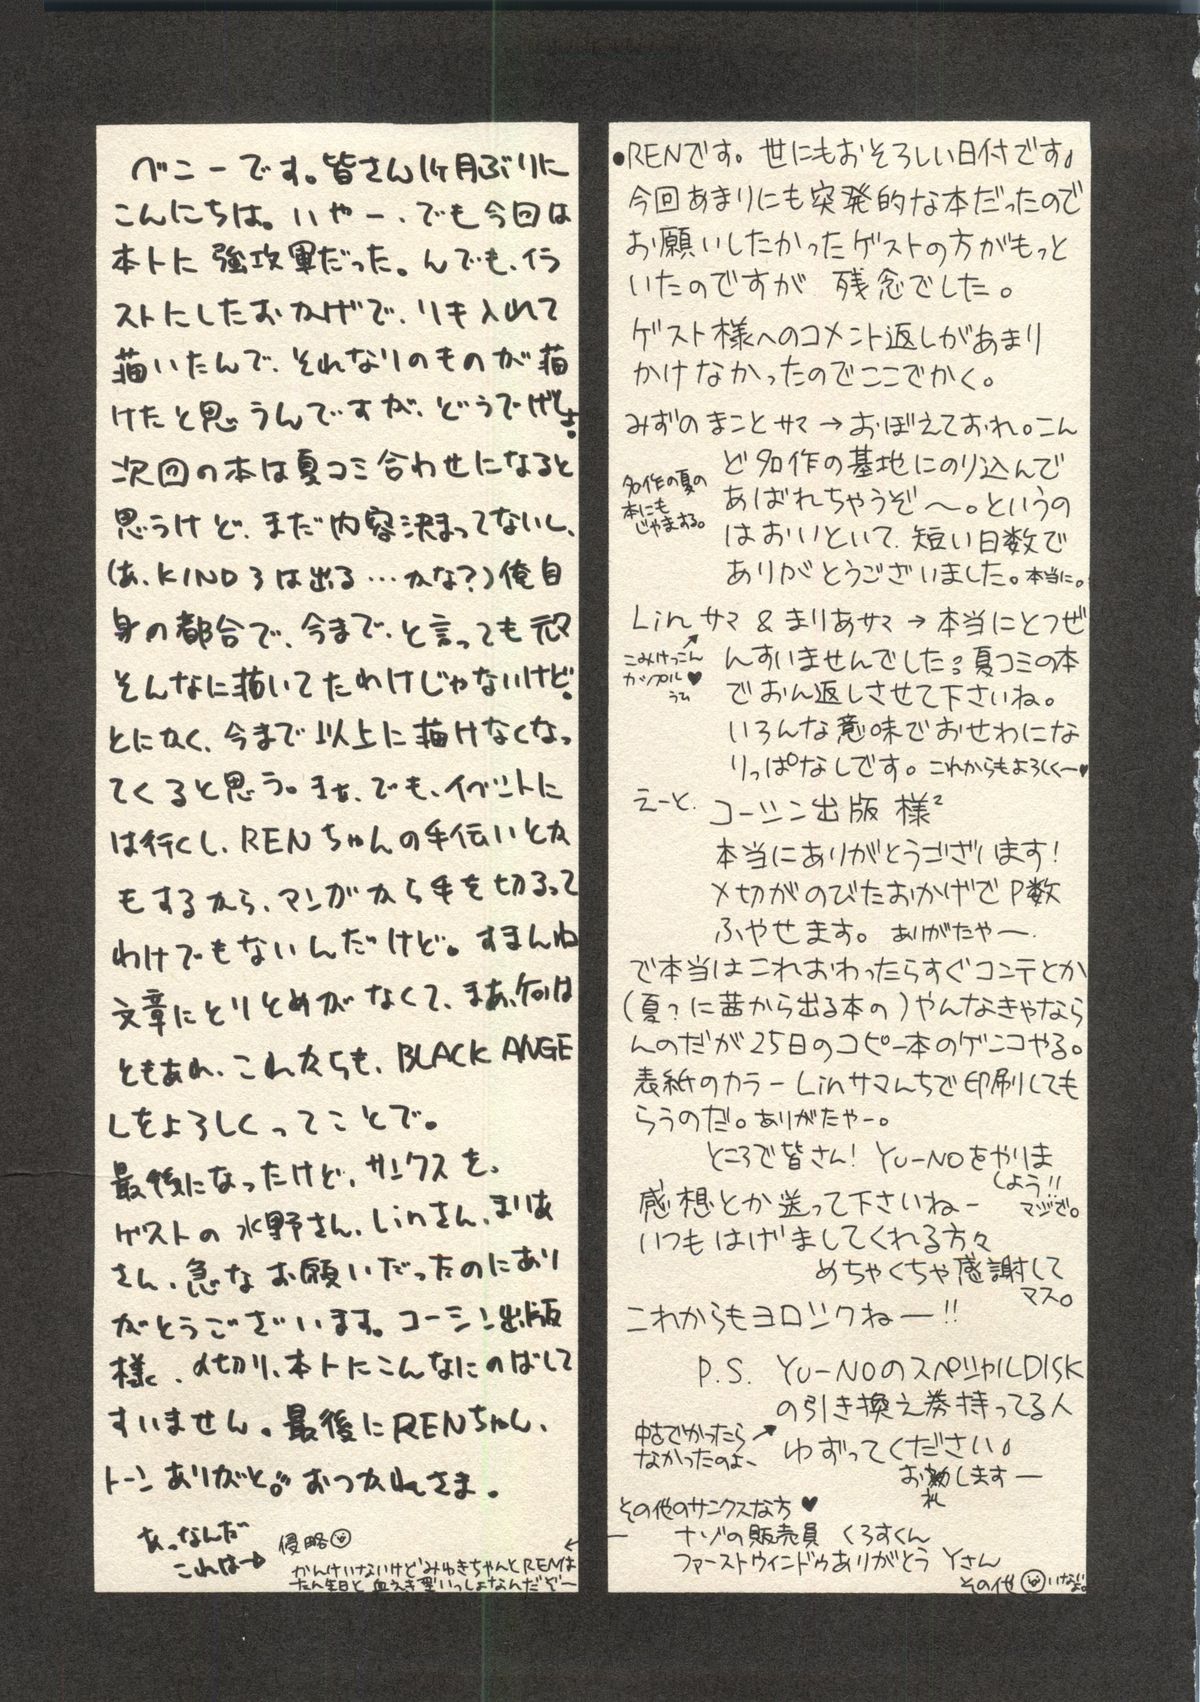 ベニーです。皆さん1ヶ月ぶりに
こんにちは。いやー、でも今回は
本トに強攻軍だった。んでも、イラ
ストにしたおかげで、リキ入れて
描いたんで、それなりのものが描
けたと思うんですが、どうでげしょ。
次回の本は夏コミ合わせになると
思うけど、まだ内容決まってないし、
(あ、KIND3は出る…かな?)俺自
身の都合で、今まで、と言っても元々
そんなに描いてたわけじゃないけど。
とにかく、今まで以上に描けなくなっ
てくると思う。まぁ、でも、イベントに
は行くし、RENちゃんの手伝いとか
もするから、マンガから手を切るって
わけでもないんだけど。すまんね
文章にとりとめがなくて、まあ、何は
ともあれ、これからも、BLACK ANGE
Lをよろしくってことで。
最後になったけど、サンクスを、
ゲストの水野さん、Linさん、まりあ
さん、急なお願いだったのにあり
がとうございます。コーシン出版
様、〆切り、本トにこんなにのばして
すいません。最後にRENちゃん、
トーンありがと。おつかれさま。
あっなんだ
これは→
侵略
かんけいないけどみゆきちゃんとRENは
たん生日と血えき型いっしょなんだぞー
●RENです。世にもおそろしい日付です。
今回あまりにも突発的な本だったので
お願いしたかったゲストの方がもっと
いたのですが 残念でした。
ゲスト様へのコメント返しがあまり
かけなかったのでここでかく。
みずのまことサマ→おぼえておれ。こん
ど名作の基地にのり込んで
あばれちゃうぞ〜。というの
はおいといて、短い日数で
ありがとうございました。本当に。
名作の夏の
本にも
じゃまする。
Linサマ & まりあサマ→本当にとつぜ
んすいませんでした。夏コミの本
でおん返しさせて下さいね。
いろんな意味でおせわにな
りっぱなしです。これからもよろしくー♥
こみけっこん
カップル♥
うむ
えーと、コーシン出版 様²
本当にありがとうございます!
〆切がのびたおかげでP数
ふやせます。ありがたやー。
で本当はこれおわったらすぐコンテとか
(夏?に茜から出る本の)やんなきゃなら
んのだが25日のコピー本のゲンコやる。
表紙のカラーLinサマんちで印刷しても
らうのだ。ありがたやー。
ところで皆さん! YU-NOをやりま
しょう!!
マジで。
感想とか送って下さいねー
いつもはげましてくれる方々
めちゃくちゃ感謝して
マス。
これからもヨロシクねー!!
P.S. YU-NOのスペシャルDISK
の引き換え券持ってる人
ゆずってください。
お礼します―
中古でかったら
なかったのよ、
その他のサンクスな方♥
ナゾの販売員 くろすくん
ファーストウィンドゥありがとう Yさん
その他